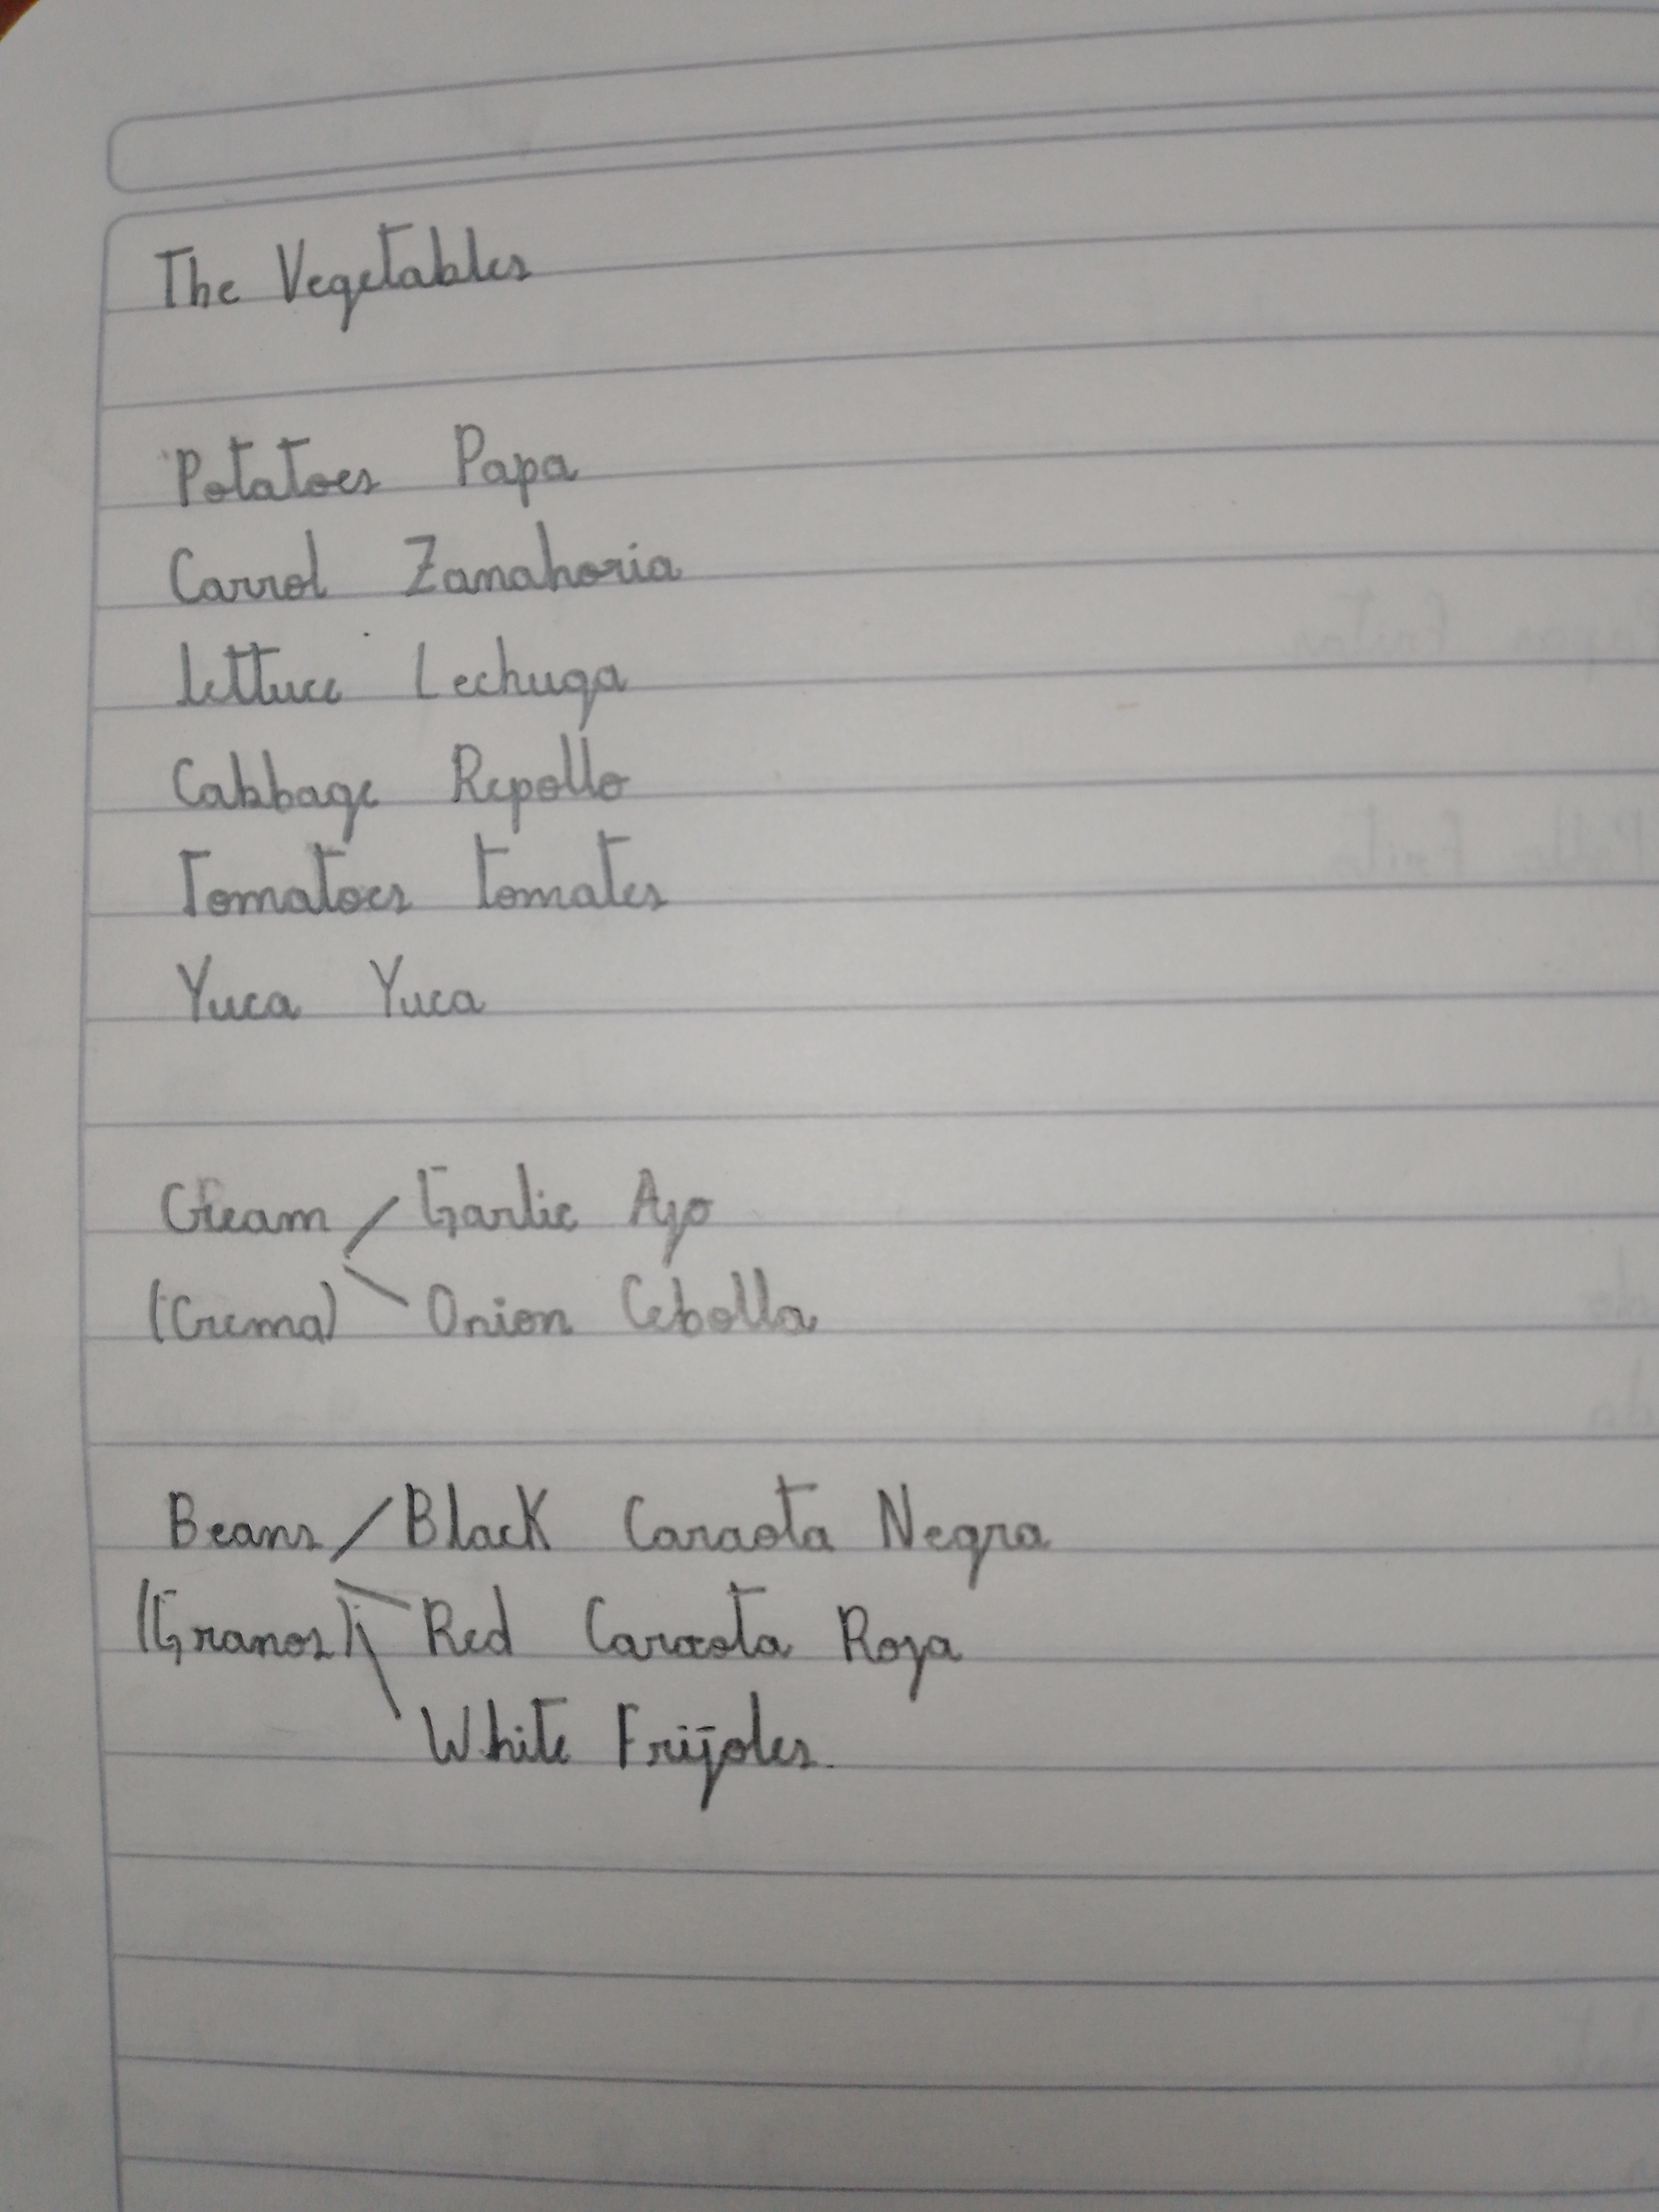 The Vegetables
Potatoes Papa
Carrol Zanahoria
Lettuce Lechuga
Cabbage Repollo
Tomatoes tomates
Yuca Yuca
Cream / Garlic Ajo
(Crema) \ Onion Cebolla
Beans / Black Caraota Negra
(Granos) \ Red Caraota Roja
\ White Frijoles.